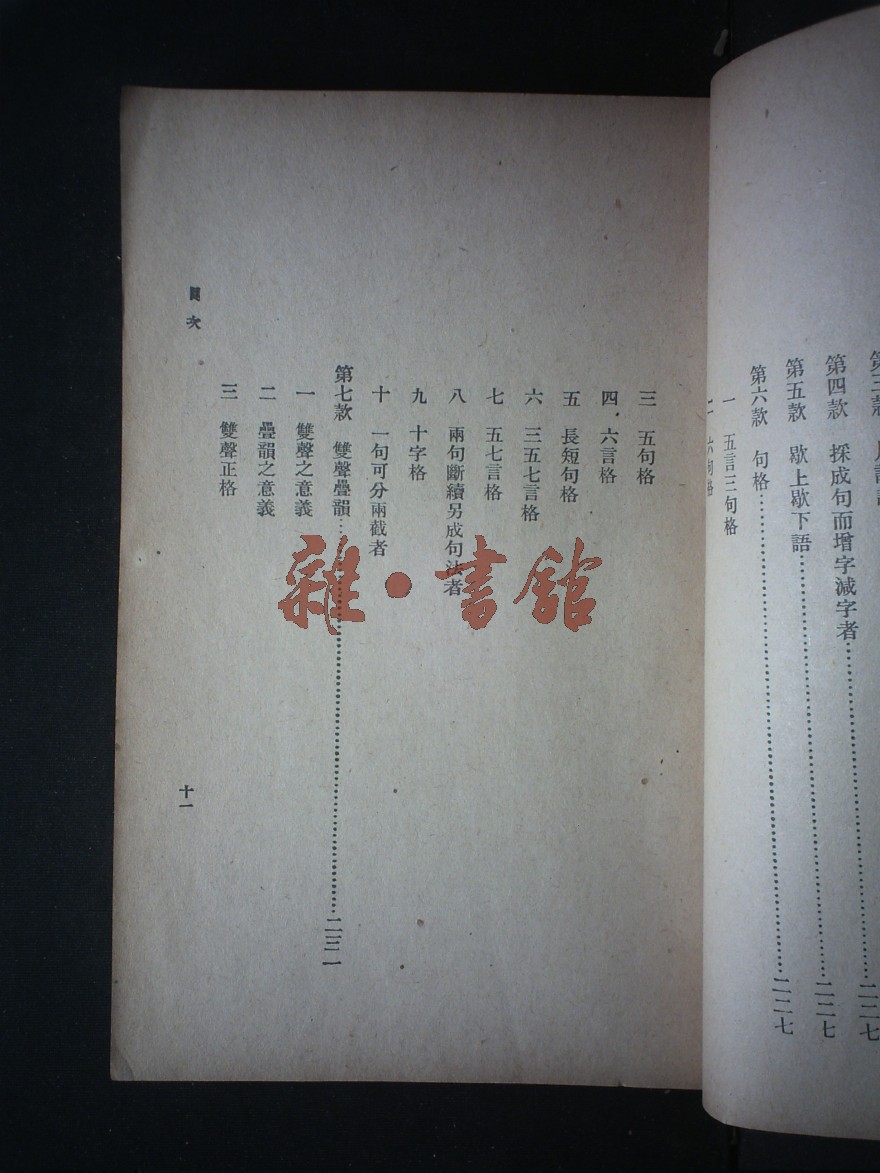 第四款　採成句而增字減字者………二二七
第五款　歇上歇下語………二二七
第六款　句格………二二七
一　五言三句格
三　五句格
四．六言格
五　長短句格
六　三五七言格
七　五七言格
八　兩句斷續另成句法者
九　十字格
十　一句可分兩截者
第七款　雙聲疊韻………二三一
一　雙聲之意義
二　疊韻之意義
三　雙聲正格
目次
十一
雜·書館